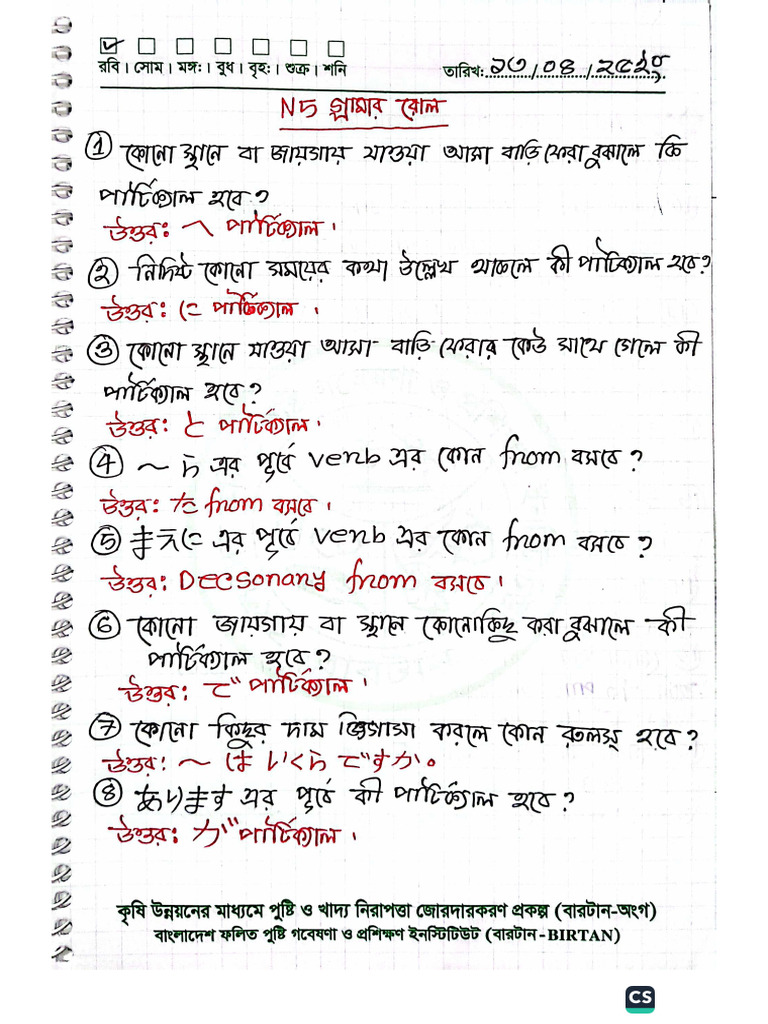 রবি। সোম। মঙ্গ:। বুধ। বৃহ:। শুক্র। শনি
তারিখ: ১৩/০৪/২০২৫
N5 গ্রামার রোল
① কোনো স্থানে বা জায়গায় যাওয়া আসা বাড়ি ফেরা বুঝালে কি
পার্টিক্যাল হবে?
উত্তর: へ পার্টিক্যাল।
② নির্দিষ্ট কোনো সময়ের কথা উল্লেখ থাকলে কী পার্টিক্যাল হবে?
উত্তর: に পার্টিক্যাল।
③ কোনো স্থানে যাওয়া আসা বাড়ি ফেরার কেউ সাথে গেলে কী
পার্টিক্যাল হবে?
উত্তর: と পার্টিক্যাল।
④ ~ら এর পূর্বে verb এর কোন from বসবে?
উত্তর: た from বসবে।
⑤ まえに এর পূর্বে verb এর কোন from বসবে?
উত্তর: Decsonary from বসবে।
⑥ কোনো জায়গায় বা স্থানে কোনোকিছু করা বুঝালে কী
পার্টিক্যাল হবে?
উত্তর: で পার্টিক্যাল।
⑦ কোনো কিছুর দাম জিজ্ঞাসা করলে কোন রুলস্ হবে?
উত্তর: ~はいくらですか。
⑧ あります এর পূর্বে কী পার্টিক্যাল হবে?
উত্তর: が পার্টিক্যাল।
কৃষি উন্নয়নের মাধ্যমে পুষ্টি ও খাদ্য নিরাপত্তা জোরদারকরণ প্রকল্প (বারটান-অংগ)
বাংলাদেশ ফলিত পুষ্টি গবেষণা ও প্রশিক্ষণ ইনস্টিটিউট (বারটান-BIRTAN)
CS